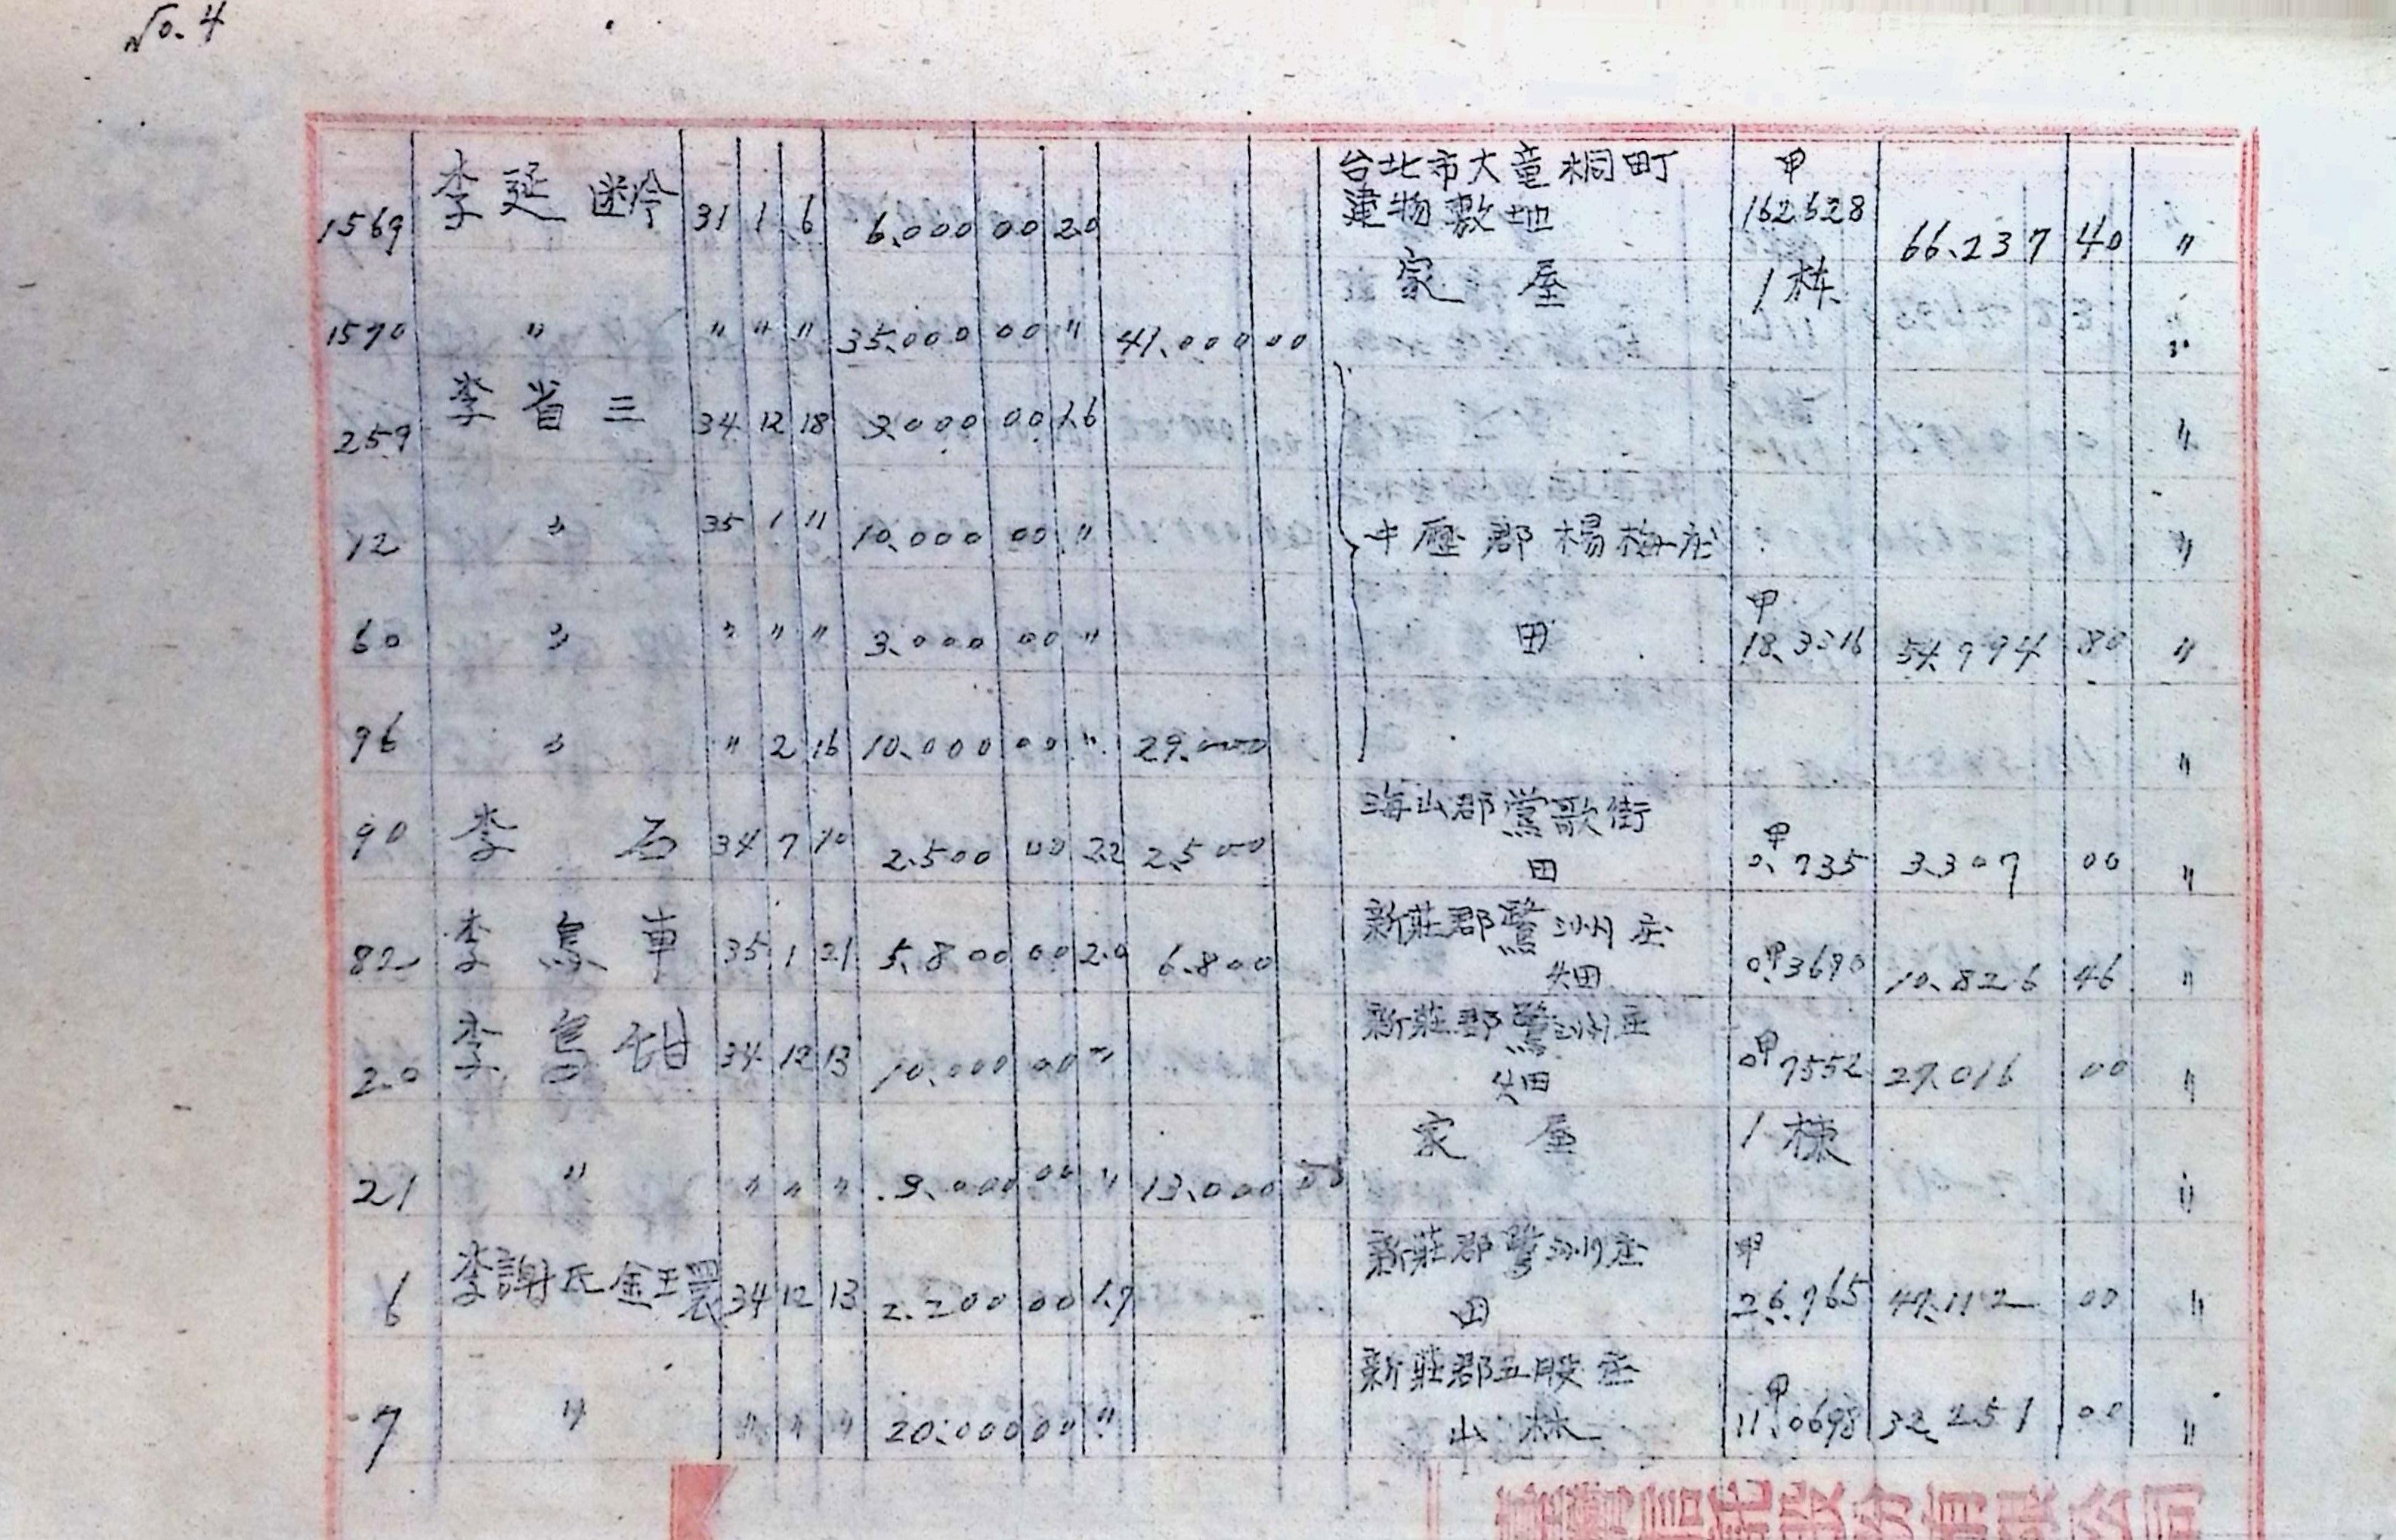 No. 4
1569 李延 31 1 6 6.000 00 2.0 台北市大竜桐町 建物敷地 甲 162628 66.237 40 〃
家 屋 1栋
1570 〃 〃 〃 〃 35.000 00 〃 41.000 00 〃
259 李省三 34 12 18 000 00 1.6 〃
12 〃 35 1 11 10.000 00 〃 中壢郡楊梅庄 〃
60 〃 〃 〃 〃 3.000 00 〃 田 甲 18.3316 54.994 80 〃
96 〃 〃 2 16 10.000 00 〃 29.000 〃
90 李 石 34 7 10 2.500 00 2.2 2.500 海山郡鶯歌街 田 甲 0.735 3.307 00 〃
82 李烏車 35 1 21 5.800 00 2.0 6.800 新莊郡鷺洲庄 畑 甲 0.3690 10.826 46 〃
20 李烏 34 12 13 10.000 00 〃 新莊郡鷺洲庄 畑 甲 0.7552 29.016 00 〃
家 屋 1棟
21 〃 〃 〃 〃 000 00 〃 13.000 00 〃
6 李謝氏金環 34 12 13 2.200 00 1.7 新莊郡鷺洲庄 田 甲 2.6.965 47.112 00 〃
7 〃 〃 〃 〃 20.000 00 〃 新莊郡五股庄 山林 甲 11.0698 32.251 00 〃
臺灣信託股份有限公司